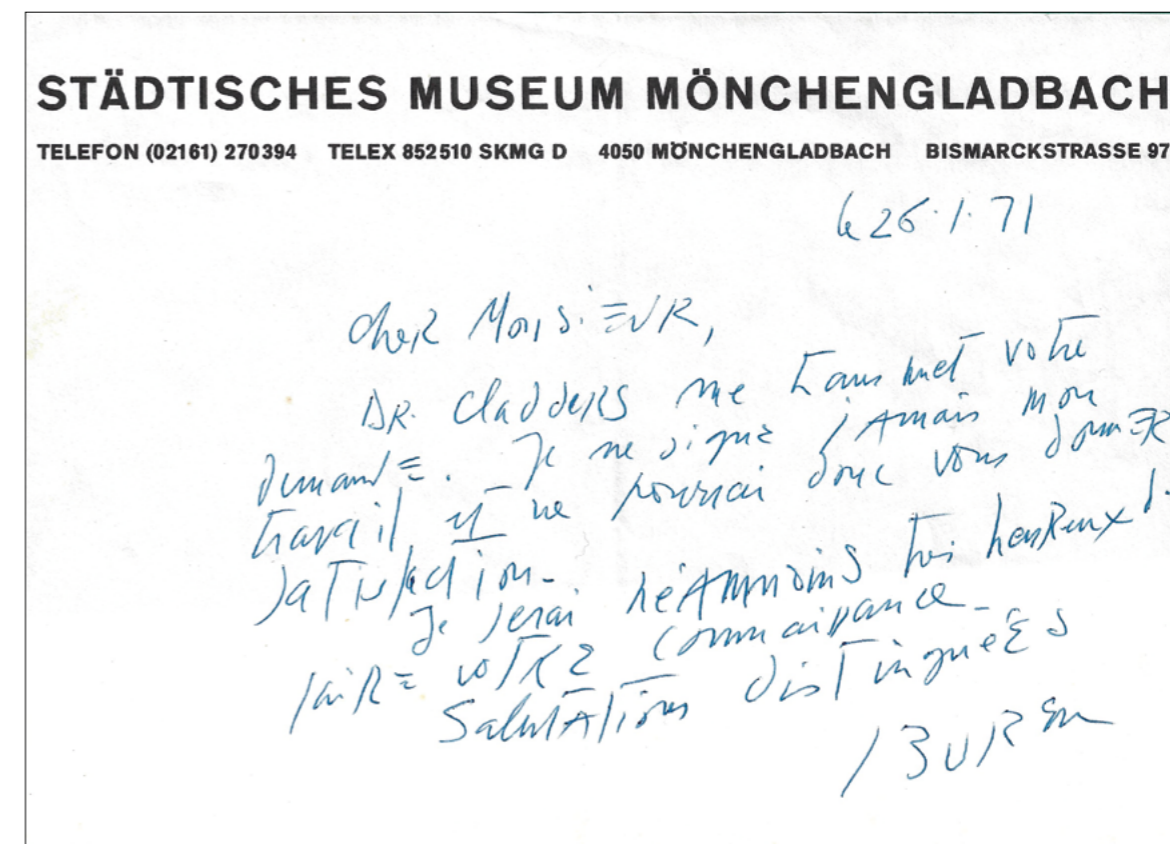 STÄDTISCHES MUSEUM MÖNCHENGLADBACH
TELEFON (02161) 270394 TELEX 852510 SKMG D 4050 MÖNCHENGLADBACH BISMARCKSTRASSE 97
le 26.1.71
Cher Monsieur,
Dr. Cladders me transmet votre
demande. Je ne signe jamais mon
travail et ne pourrai donc vous donner
satisfaction.
Je serai néammoins très heureux d.
faire votre connaissance.
Salutations distinguées
BUREN